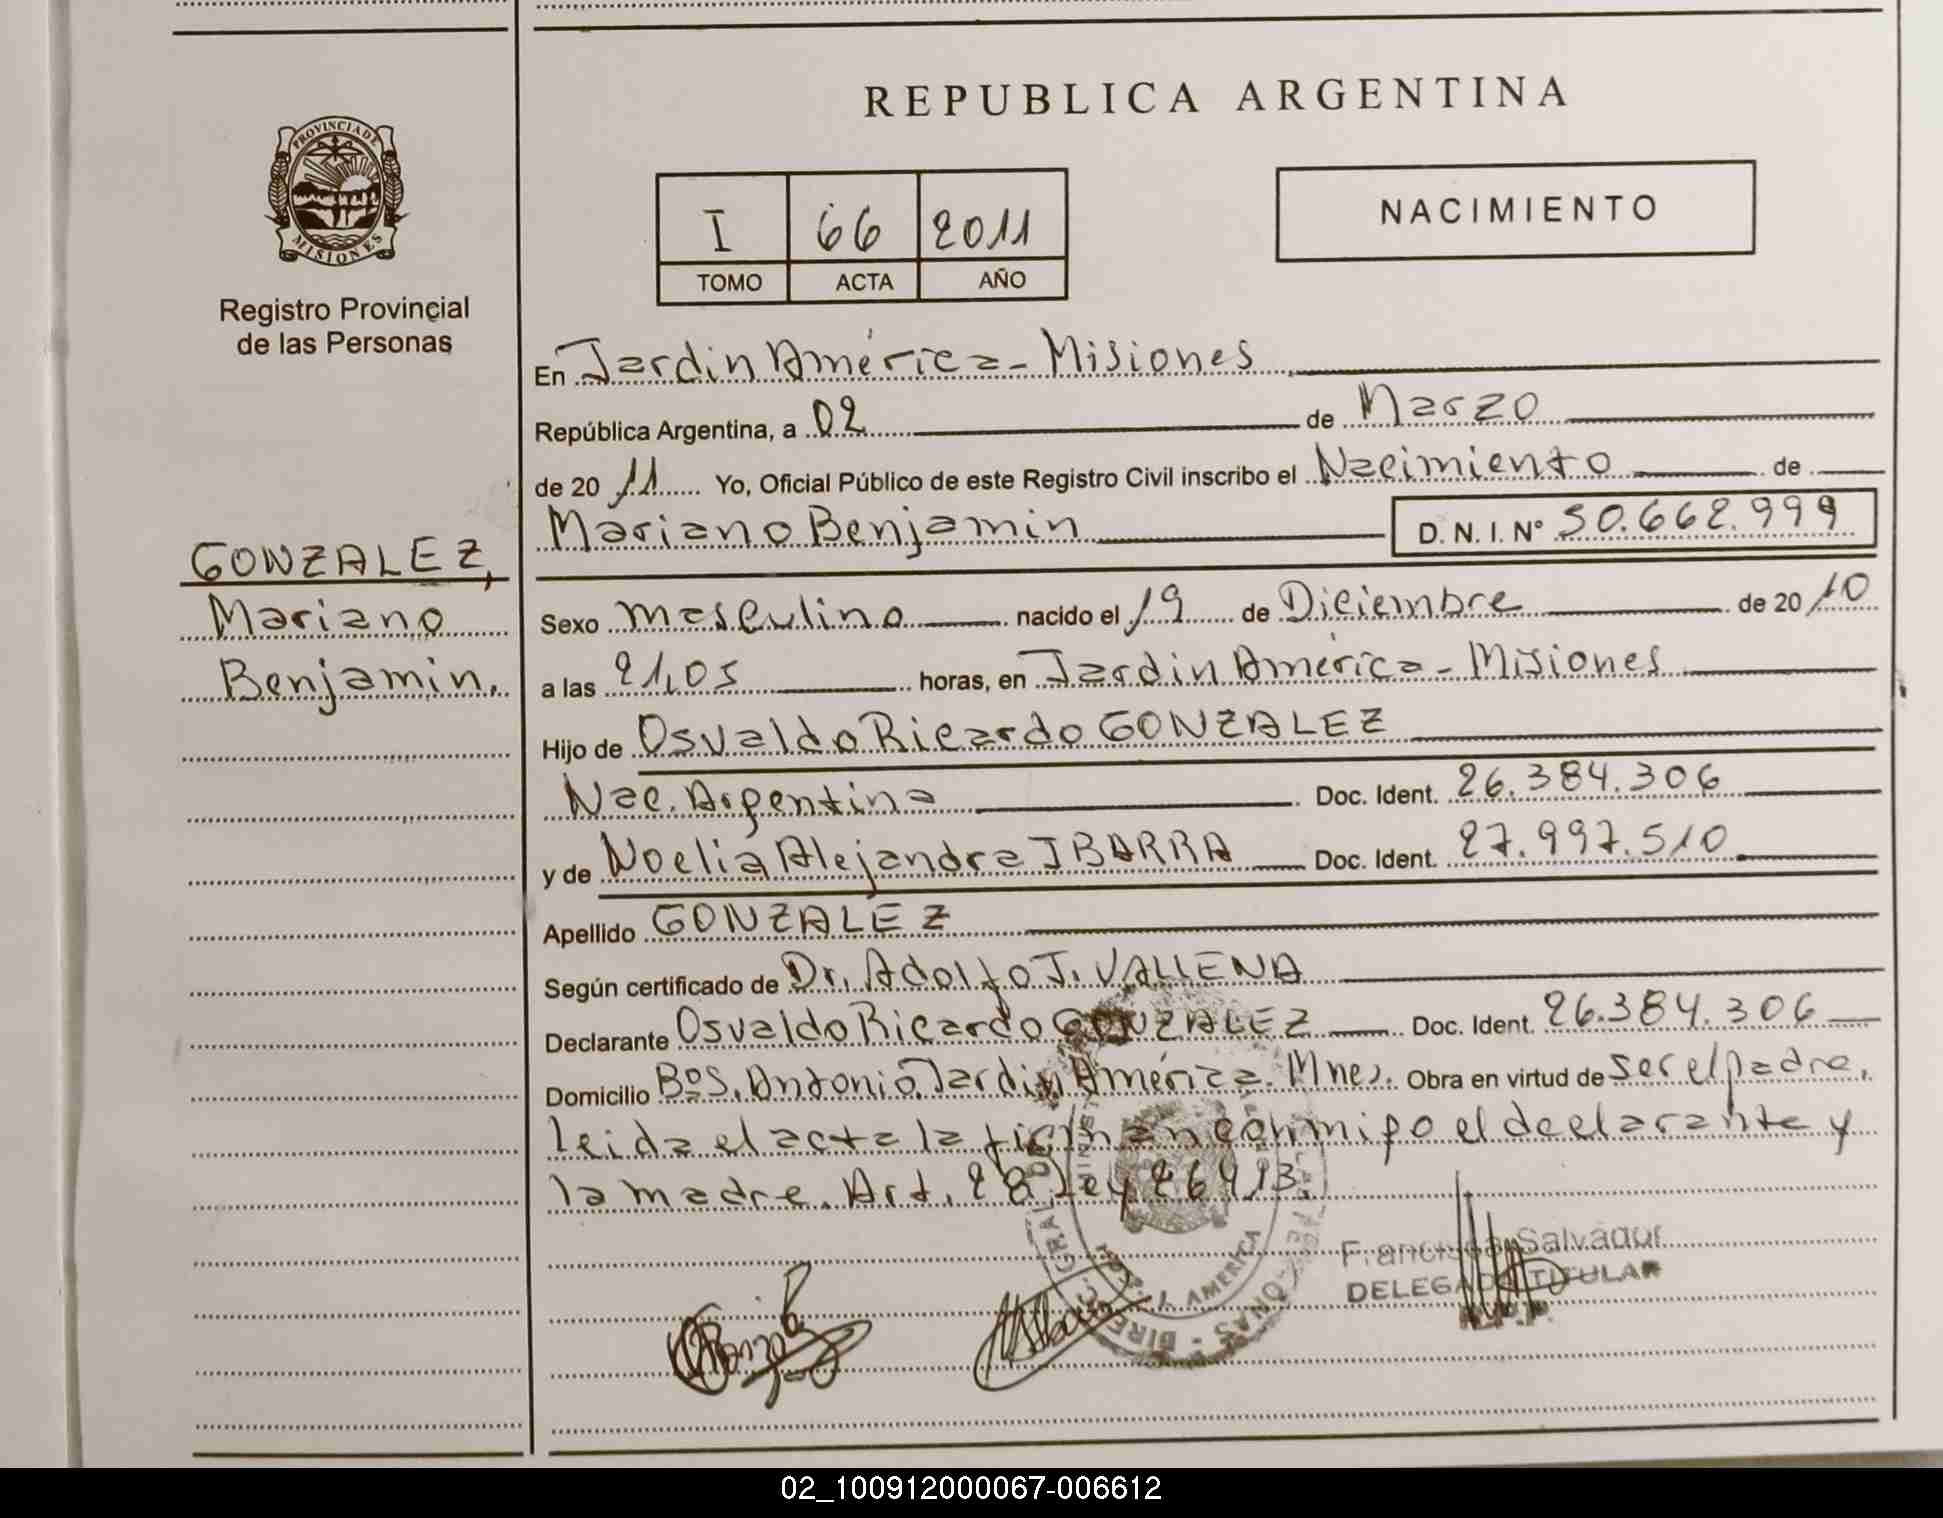 REPUBLICA ARGENTINA
PROVINCIA DE
MISIONES
Registro Provincial
de las Personas
I 66 2011
TOMO ACTA AÑO
NACIMIENTO
En Jardin América - Misiones
República Argentina, a 02 de Marzo
de 20 11 Yo, Oficial Público de este Registro Civil inscribo el Nacimiento de
Mariano Benjamin D. N. I. Nº 50.662.999
GONZALEZ,
Mariano
Benjamin.
Sexo masculino nacido el 19 de Diciembre de 20 10
a las 21,05 horas, en Jardin América - Misiones
Hijo de Osvaldo Ricardo GONZALEZ
Nac. Argentina Doc. Ident. 26.384.306
y de Noelia Alejandra IBARRA Doc. Ident. 27.997.510
Apellido GONZALEZ
Según certificado de Dr. Adolfo J. VALLENA
Declarante Osvaldo Ricardo GONZALEZ Doc. Ident. 26.384.306
Domicilio BºS. Antonio. Jardin América. Mnes. Obra en virtud de ser el padre,
leida el acta la firman conmigo el declarante y
la madre. Art. 28 Ley 26413.
Salvador
DELEGADO TITULAR
AMERICA
02_100912000067-006612